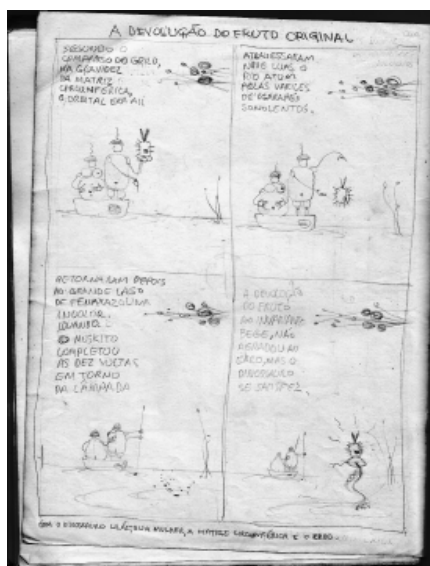 A DEVOLUÇÃO DO FRUTO ORIGINAL
SEGUNDO O
DO GRILO,
NA GRAVIDEZ
DA MATRIZ
CIRCUNFÉRICA,
O ORBITAL ERA ALI
ATRAVESSARAM
NOVE LUAS O
RIO ATUM
PELAS VARIZES
DE IGARAPÉS
SONOLENTOS.
RETORNARAM DEPOIS
AO GRANDE LAGO
DE FENILBAZOLINA
INCOLOR,
QUANDO
O MUSKITO
COMPLETOU
AS DEZ VOLTAS
EM TORNO
DA LÂMPADA
A DEVOLUÇÃO
DO FRUTO
AO
BEGE, NÃO
AGRADOU AO
MAS O
DINOSSAURO
SE SATISFEZ.
O DINOSSAURO MULHER, A MATRIZ CIRCUNFÉRICA E O